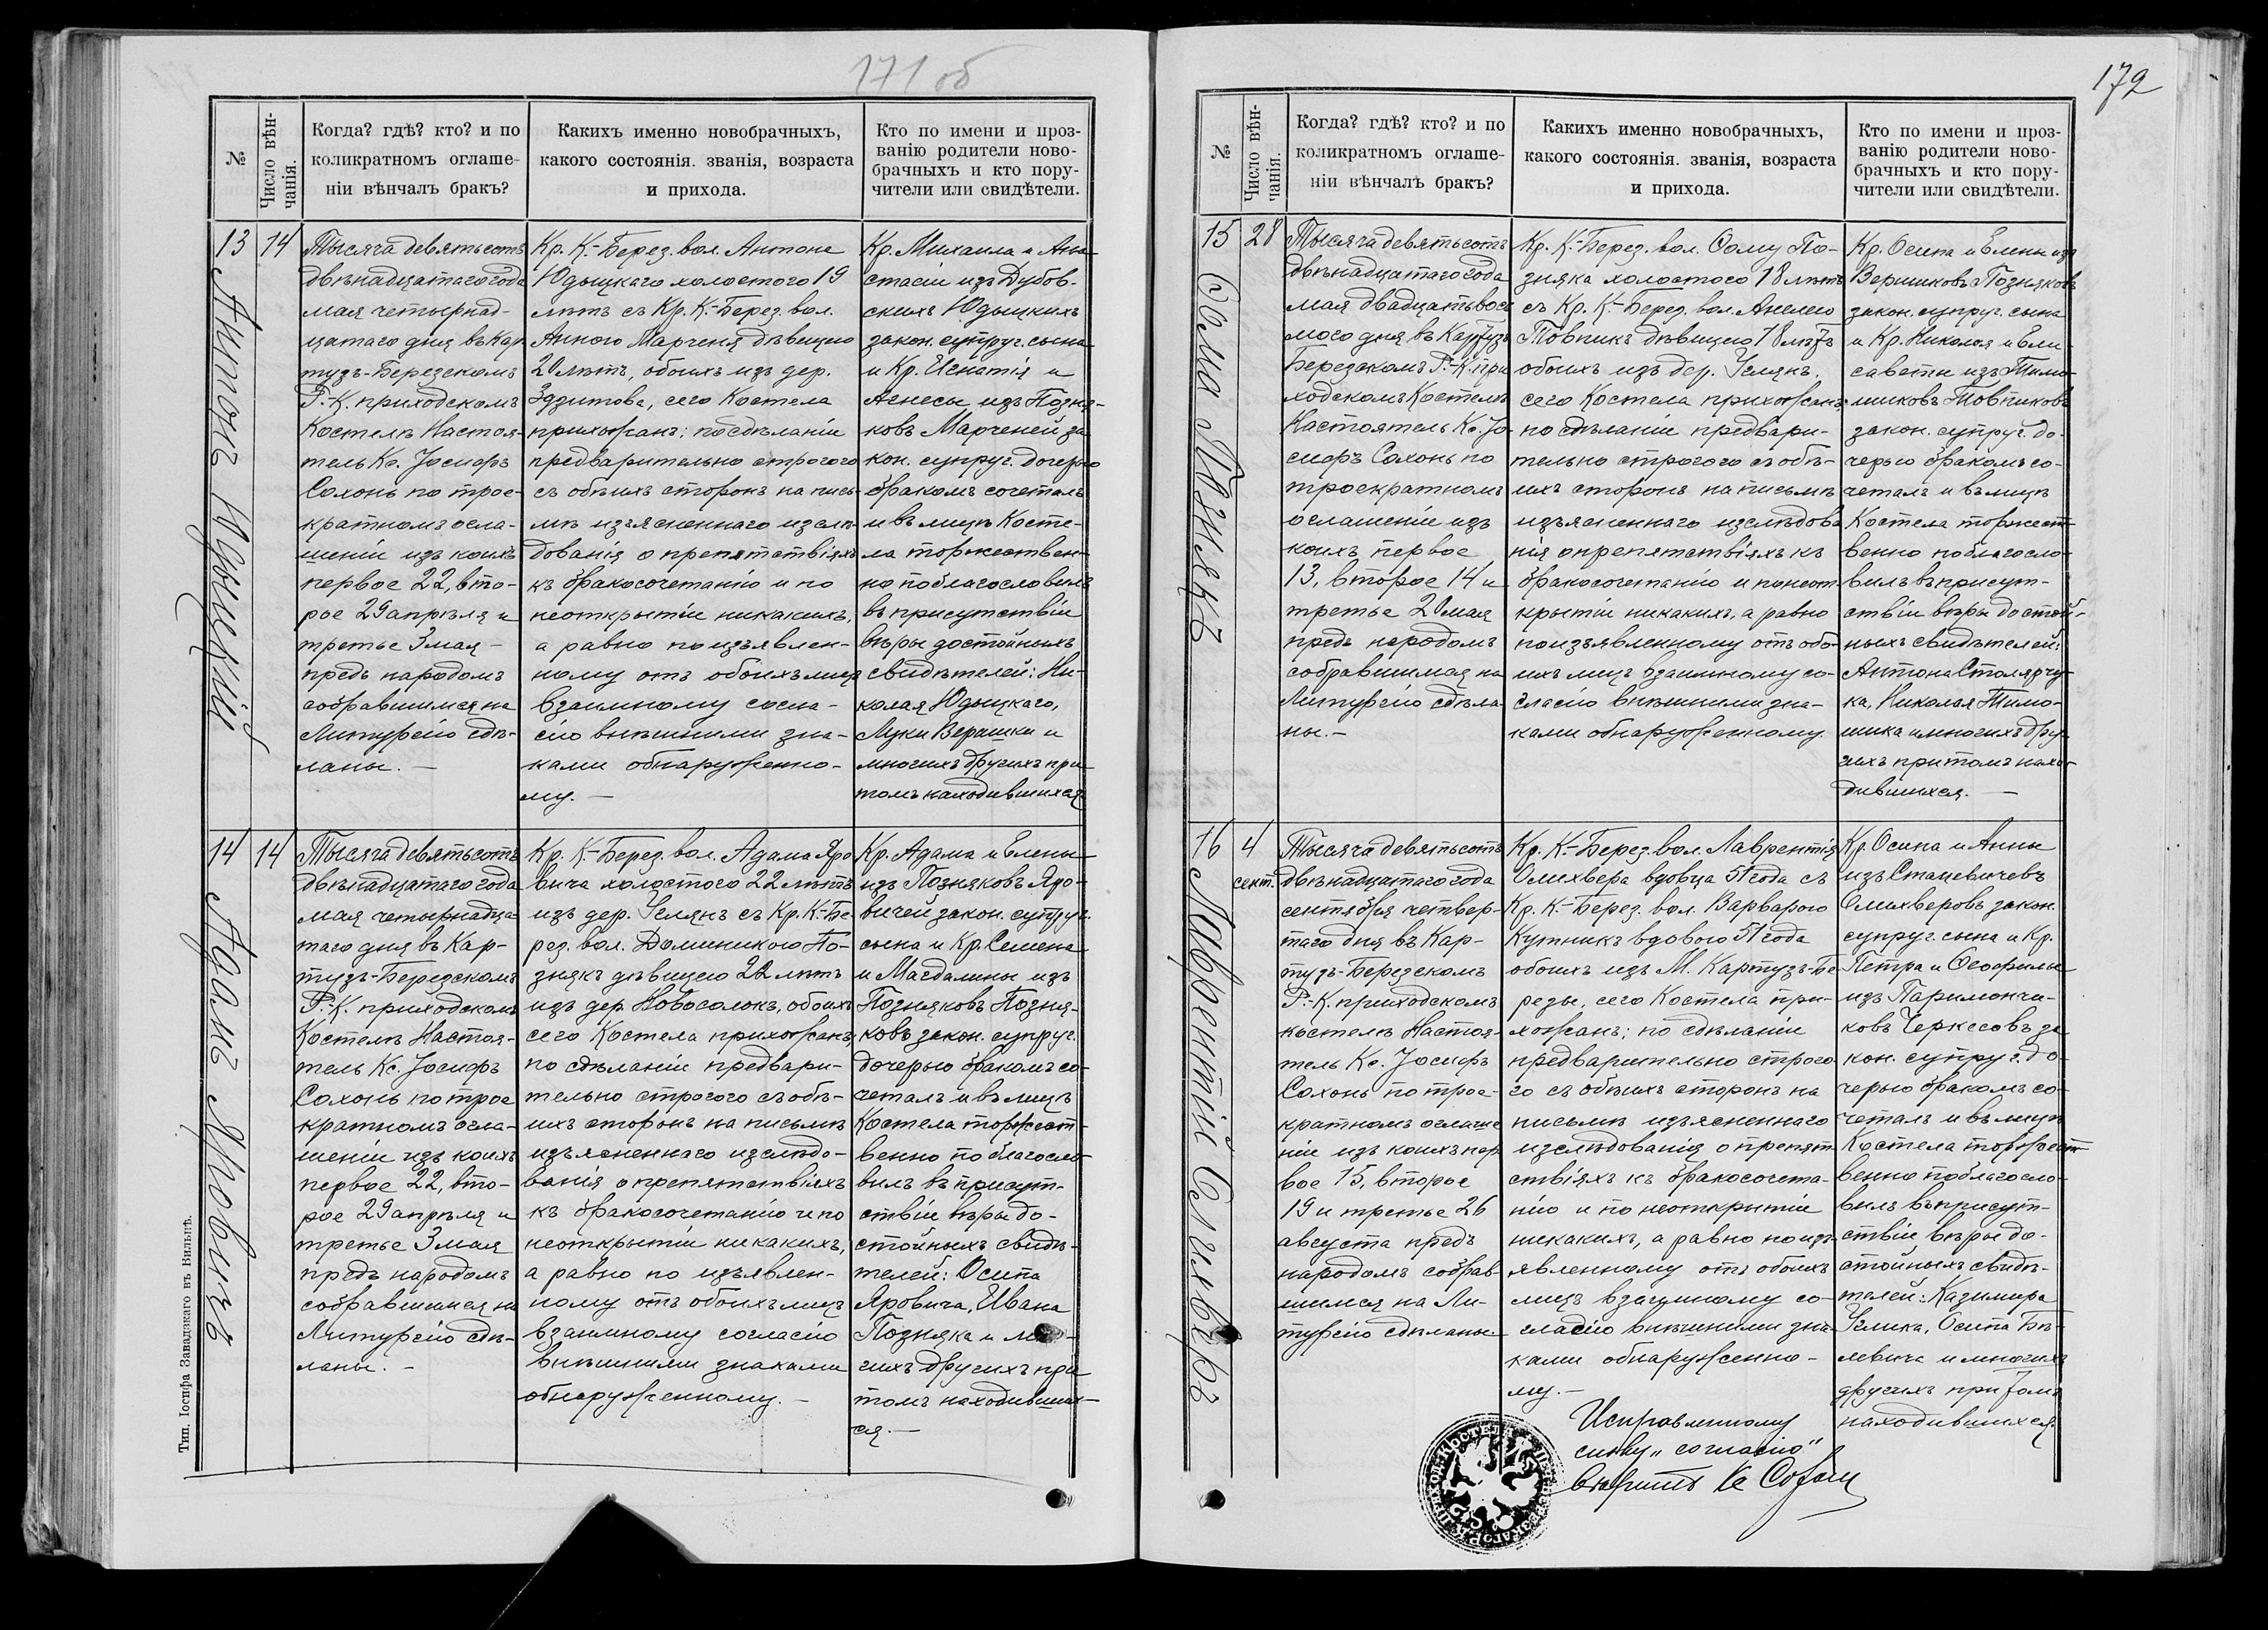 171 об
№
Число вѣн-
чанія.
Когда? гдѣ? кто? и по
коликратномъ оглаше-
ніи вѣнчалъ бракъ?
Какихъ именно новобрачныхъ,
какого состоянія. званія, возраста
и прихода.
Кто по имени и проз-
ванію родители ново-
брачныхъ и кто пору-
чители или свидѣтели.
13
14
Антонъ Юдыцкій
Тысяча девятьсотъ
двѣнадцатаго года
мая четырнад-
цатаго дня въ Кар
тузъ-Березскомъ
Р.-К. приходскомъ
Костелѣ Настоя-
тель Кс. Іосифъ
Сохонь по трое-
кратномъ огла-
шеніи изъ коихъ
первое 22, вто-
рое 29 апрѣля и
третье 3 мая -
предъ народомъ
собравшимся на
Литургію сдѣ-
ланы. -
Кр. К.-Берез. вол. Антона
Юдыцкаго холостого 19
лѣтъ съ Кр. К.-Берез. вол.
Анною Марченя дѣвицею
20 лѣтъ, обоихъ изъ дер.
Здзитова, сего Костела
прихожанъ; по сдѣланіи
предварительно строгого
съ обѣихъ сторонъ на пись-
мѣ изъясненнаго изслѣ-
дованія о препятствіяхъ
къ бракосочетанію и по
неоткрытіи никакихъ,
а равно по изъявлен-
ному отъ обоихъ лицъ
взаимному согла-
сію внѣшними зна-
ками обнаруженно-
му. -
Кр. Михаила и Ана-
стасіи изъ Дубов-
скихъ Юдыцкихъ
закон. супруг. сына
и Кр. Игнатія и
Агнесы изъ Позня-
ковъ Марченей за
кон. супруг. дочерью
бракомъ сочеталъ
и въ лицѣ Косте-
ла торжествен-
но поблагословилъ
въ присутствіи
вѣры достойныхъ
свидѣтелей: Ни-
колая Юдыцкаго,
Луки Верашки и
многихъ другихъ при
томъ находившихся.
14
14
Адамъ Яровичъ
Тысяча девятьсотъ
двѣнадцатаго года
мая четырнадца
таго дня въ Кар-
тузъ-Березскомъ
Р.-К. приходскомъ
Костелѣ Настоя-
тель Кс. Іосифъ
Сохонь по трое
кратномъ огла-
шеніи изъ коихъ
первое 22, вто-
рое 29 апрѣля и
третье 3 мая
предъ народомъ
собравшимся на
Литургію сдѣ-
ланы. -
Кр. К.-Берез. вол. Адама Яро
вича холостого 22 лѣтъ
изъ дер. Углянъ съ Кр. К.-Бе
рез. вол. Доминикою По-
знякъ дѣвицею 22 лѣтъ
изъ дер. Новосолокъ, обоихъ
сего Костела прихожанъ,
по сдѣланіи предвари-
тельно строгого съ обѣ-
ихъ сторонъ на письмѣ
изъясненнаго изслѣдо-
ванія о препятствіяхъ
къ бракосочетанію и по
неоткрытіи никакихъ,
а равно по изъявлен-
ному отъ обоихъ лицъ
взаимному согласію
внѣшними знаками
обнаруженному. -
Кр. Адама и Елены
изъ Позняковъ Яро-
вичей закон. супруг.
сына и Кр. Семена
и Магдалины изъ
Позняковъ Позня-
ковъ закон. супруг.
дочерью бракомъ со-
четалъ и въ лицѣ
Костела торжест-
венно поблагосло-
вилъ въ присут-
ствіи вѣры до-
стойныхъ свидѣ-
телей: Осипа
Яровича, Ивана
Позняка и
гихъ другихъ при
томъ находивших-
ся. -
Тип. Іосифа Завадзкаго въ Вильнѣ.
172
№
Число вѣн-
чанія.
Когда? гдѣ? кто? и по
коликратномъ оглаше-
ніи вѣнчалъ бракъ?
Какихъ именно новобрачныхъ,
какого состоянія. званія, возраста
и прихода.
Кто по имени и проз-
ванію родители ново-
брачныхъ и кто пору-
чители или свидѣтели.
15
28
Ѳома Познякъ
Тысяча девятьсотъ
двѣнадцатаго года
мая двадцать вось
мого дня въ Картузъ
Березскомъ Р.-К. при
ходскомъ Костелѣ
Настоятель Кс. Іо-
сифъ Сохонь по
троекратномъ
оглашеніи изъ
коихъ первое
13, второе 14 и
третье 20 мая
предъ народомъ
собравшимся на
Литургію сдѣла
ны. -
Кр. К.-Берез. вол. Ѳому По-
зняка холостого 18 лѣтъ
съ Кр. К.-Берез. вол. Анелею
Товпикъ дѣвицею 18 лѣтъ
обоихъ изъ дер. Углянъ,
сего Костела прихожанъ,
по сдѣланіи предвари-
тельно строгого съ обѣ-
ихъ сторонъ на письмѣ
изъясненнаго изслѣдова
нія о препятствіяхъ къ
бракосочетанію и по неот-
крытіи никакихъ, а равно
по изъявленному отъ обо-
ихъ лицъ взаимному со-
гласію внѣшними зна-
ками обнаруженному.
Кр. Осипа и Елены изъ
Вершиковъ Позняковъ
закон. супруг. сына
и Кр. Николая и Ели-
саветы изъ Тимо-
шиковъ Товпиковъ
закон. супруг. до-
черью бракомъ со-
четалъ и въ лицѣ
Костела торжест-
венно поблагосло-
вилъ въ присут-
ствіи вѣры достой-
ныхъ свидѣтелей:
Антона Столярчу-
ка, Николая Тимо-
шика и многихъ дру-
гихъ при томъ нахо-
дившихся. -
16
4
сент.
Лаврентій Олихверъ
Тысяча девятьсотъ
двѣнадцатаго года
сентября четвер-
таго дня въ Кар-
тузъ-Березскомъ
Р.-К. приходскомъ
костелѣ Настоя-
тель Кс. Іосифъ
Сохонь по трое-
кратномъ оглаше
ніи изъ коихъ пер
вое 15, второе
19 и третье 26
августа предъ
народомъ собрав-
шимся на Ли-
тургію сдѣланы.
Кр. К.-Берез. вол. Лаврентія
Олихвера вдовца 51 года съ
Кр. К.-Берез. вол. Варварою
Кутникъ вдовою 51 года
обоихъ изъ М. Картузъ-Бе
резы, сего Костела при-
хожанъ; по сдѣланіи
предварительно строго
го съ обѣихъ сторонъ на
письмѣ изъясненнаго
изслѣдованія о препят
ствіяхъ къ бракосочета-
нію и по неоткрытіи
никакихъ, а равно по изъ
явленному отъ обоихъ
лицъ взаимному со-
гласію внѣшними зна-
ками обнаруженно-
му. -
Кр. Осипа и Анны
изъ Стацевичевъ
Олихверовъ закон.
супруг. сына и Кр.
Петра и Ѳеофилы
изъ Паримончи-
ковъ Черкесовъ за
кон. супруг. до-
черью бракомъ со-
четалъ и въ лицѣ
Костела торжест
венно поблагосло-
вилъ въ присут-
ствіи вѣры до-
стойныхъ свидѣ-
телей: Казимира
Углика, Осипа Бѣ-
левича и многихъ
другихъ при томъ
находившихся.
Исправленному
слову „согласію"
вѣрить Кс Сохонь